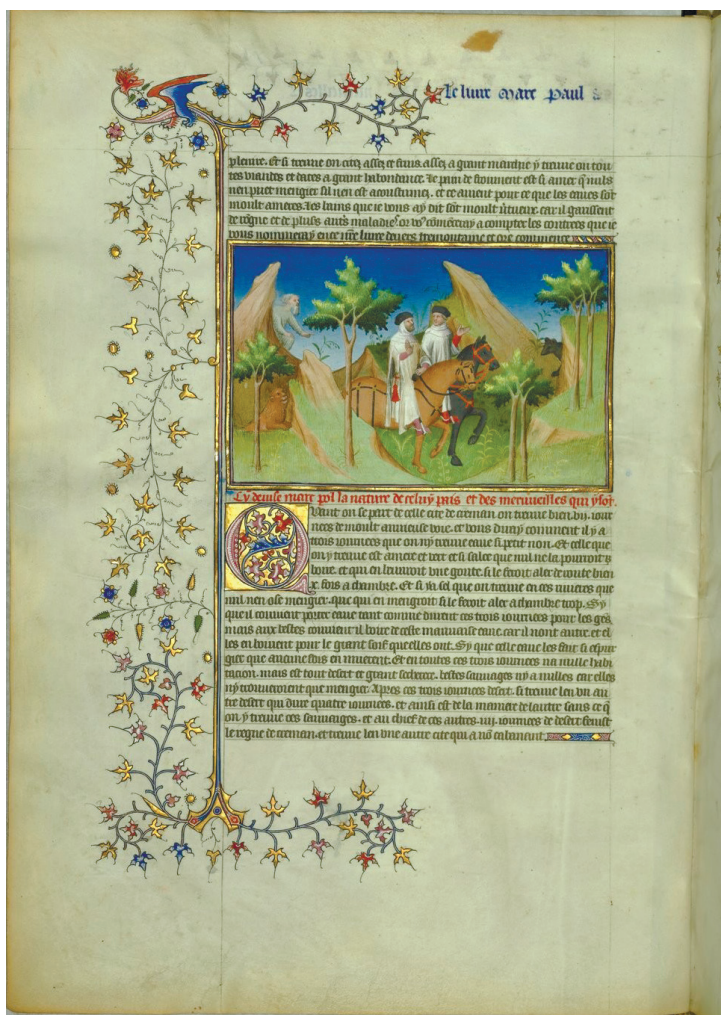 Le liure Marc Paul
pleine. Et si treuue on citez assez et fruis assez a grant marchie y treuue on tou
tes viandes et dates a grant habondance. Le pain de froument est si amer que nuls
nen puet mengier sil nen est acoustumez. et ce auient pour ce que les eaues sont
moult ameres. Les bains que ie vous ay dit sont moult uertueux. car il garissent
de rogne et de pluseurs autres maladies. or vous commenceray a compter les contrees que ie
vous nommeray en ce nostre liure deuers tremontaine et ore commence
Cy deuise marc pol la nature de celuy pais et des merueilles qui y sont.
Quant on se part de celle cite de creman on treuue bien .vij. iour
nees de moult anuieuse voie. et vous diray comment il y a
trois iournees que on ny treuue eaue si petit non. Et celle que
on y treuue est amere et vert et si salee que nul ne la pourroit
boire. et qui en beuuroit vne goute. si le feroit aler de route bien
x. fois a chambre. Et si du sel que on treuue en ces riuieres que
nul nen ose mengier. que qui en mengroit si le feroit aler a chambre trop. Sy
que il conuient porter eaue tant comme durent ces trois iournees pour les gens.
mais aux bestes conuient il boire de ceste mauuaise eaue. car il nont autre. et el
les en boiuent pour le grant soif que elles ont. Sy que celle eaue les fait si espur
gier que aucune fois en muerent. Et en toutes ces trois iournees na nulle habi
tacion. mais est tout desert et grant secheresce. bestes sauuages ny a nulles car elles
ny trouueroient que mengier. Apres ces trois iournees desert. si treuue len vn au
tre desert qui dure quatre iournees. et ainsi est de la maniere de lautre sans ce que
on y treuue asnes sauuaiges. et au chief de ces autres .iiij. iournees de desert fenist
le regne de creman. et treuue len vne autre cite qui a non cabanant